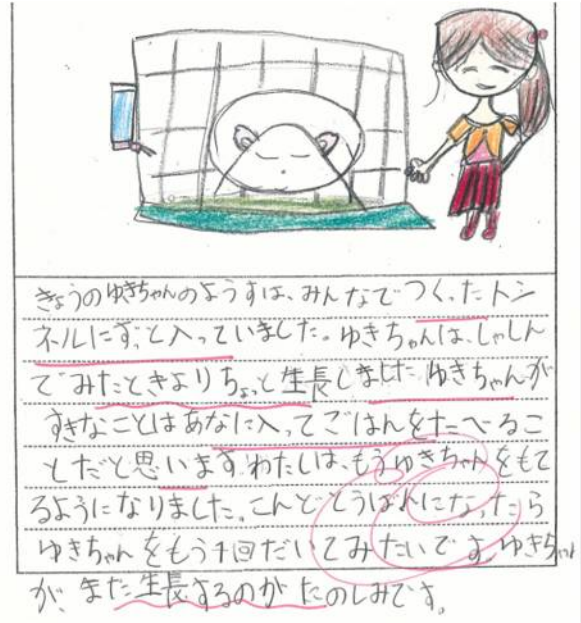 きょうのゆきちゃんのようすは、みんなでつくったトン
ネルにずっと入っていました。ゆきちゃんは、しゃしん
でみたときよりちょっと生長しました。ゆきちゃんが
すきなことはあなに入ってごはんをたべるこ
とだと思います。わたしは、もうゆきちゃんをもて
るようになりました。こんどとうばんになったら
ゆきちゃんをもう1回だいてみたいです。ゆきちゃん
が、また生長するのがたのしみです。